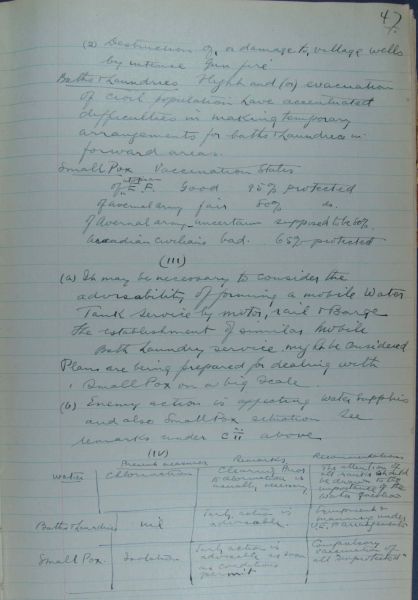 47.
(2) Destruction of, or damage to, village wells
by intense gun fire
Baths & Laundries Flight and (or) evacuation
of civil population have accentuated
difficulties in making temporary
arrangements for baths & laundries in
forward areas.
Small Pox Vaccination States
of E.F. Good 95% protected
of army fair 80% do.
of army uncertain supposed to be 60%
civilians bad. 65% protected
(III)
(a) It may be necessary to consider the
advisability of forming a mobile Water
Tank Service by motor, rail & Barge
The establishment of similar Mobile
Bath Laundry service might be considered
Plans are being prepared for dealing with
Small Pox on a big Scale.
(b) Enemy action is affecting Water Supplies
and also Small Pox situation See
remarks under C ii above
(IV)
Present measures Remarks Recommendations
Water Chlorination Clearing prior to chlorination is usually necessary The attention of all ranks should be drawn to the importance of the Water question
Baths & Laundries nil Early action is advisable. Equipment & under
Small Pox. Isolation Early action is advisable as soon as conditions permit Compulsory vaccination of all unprotected